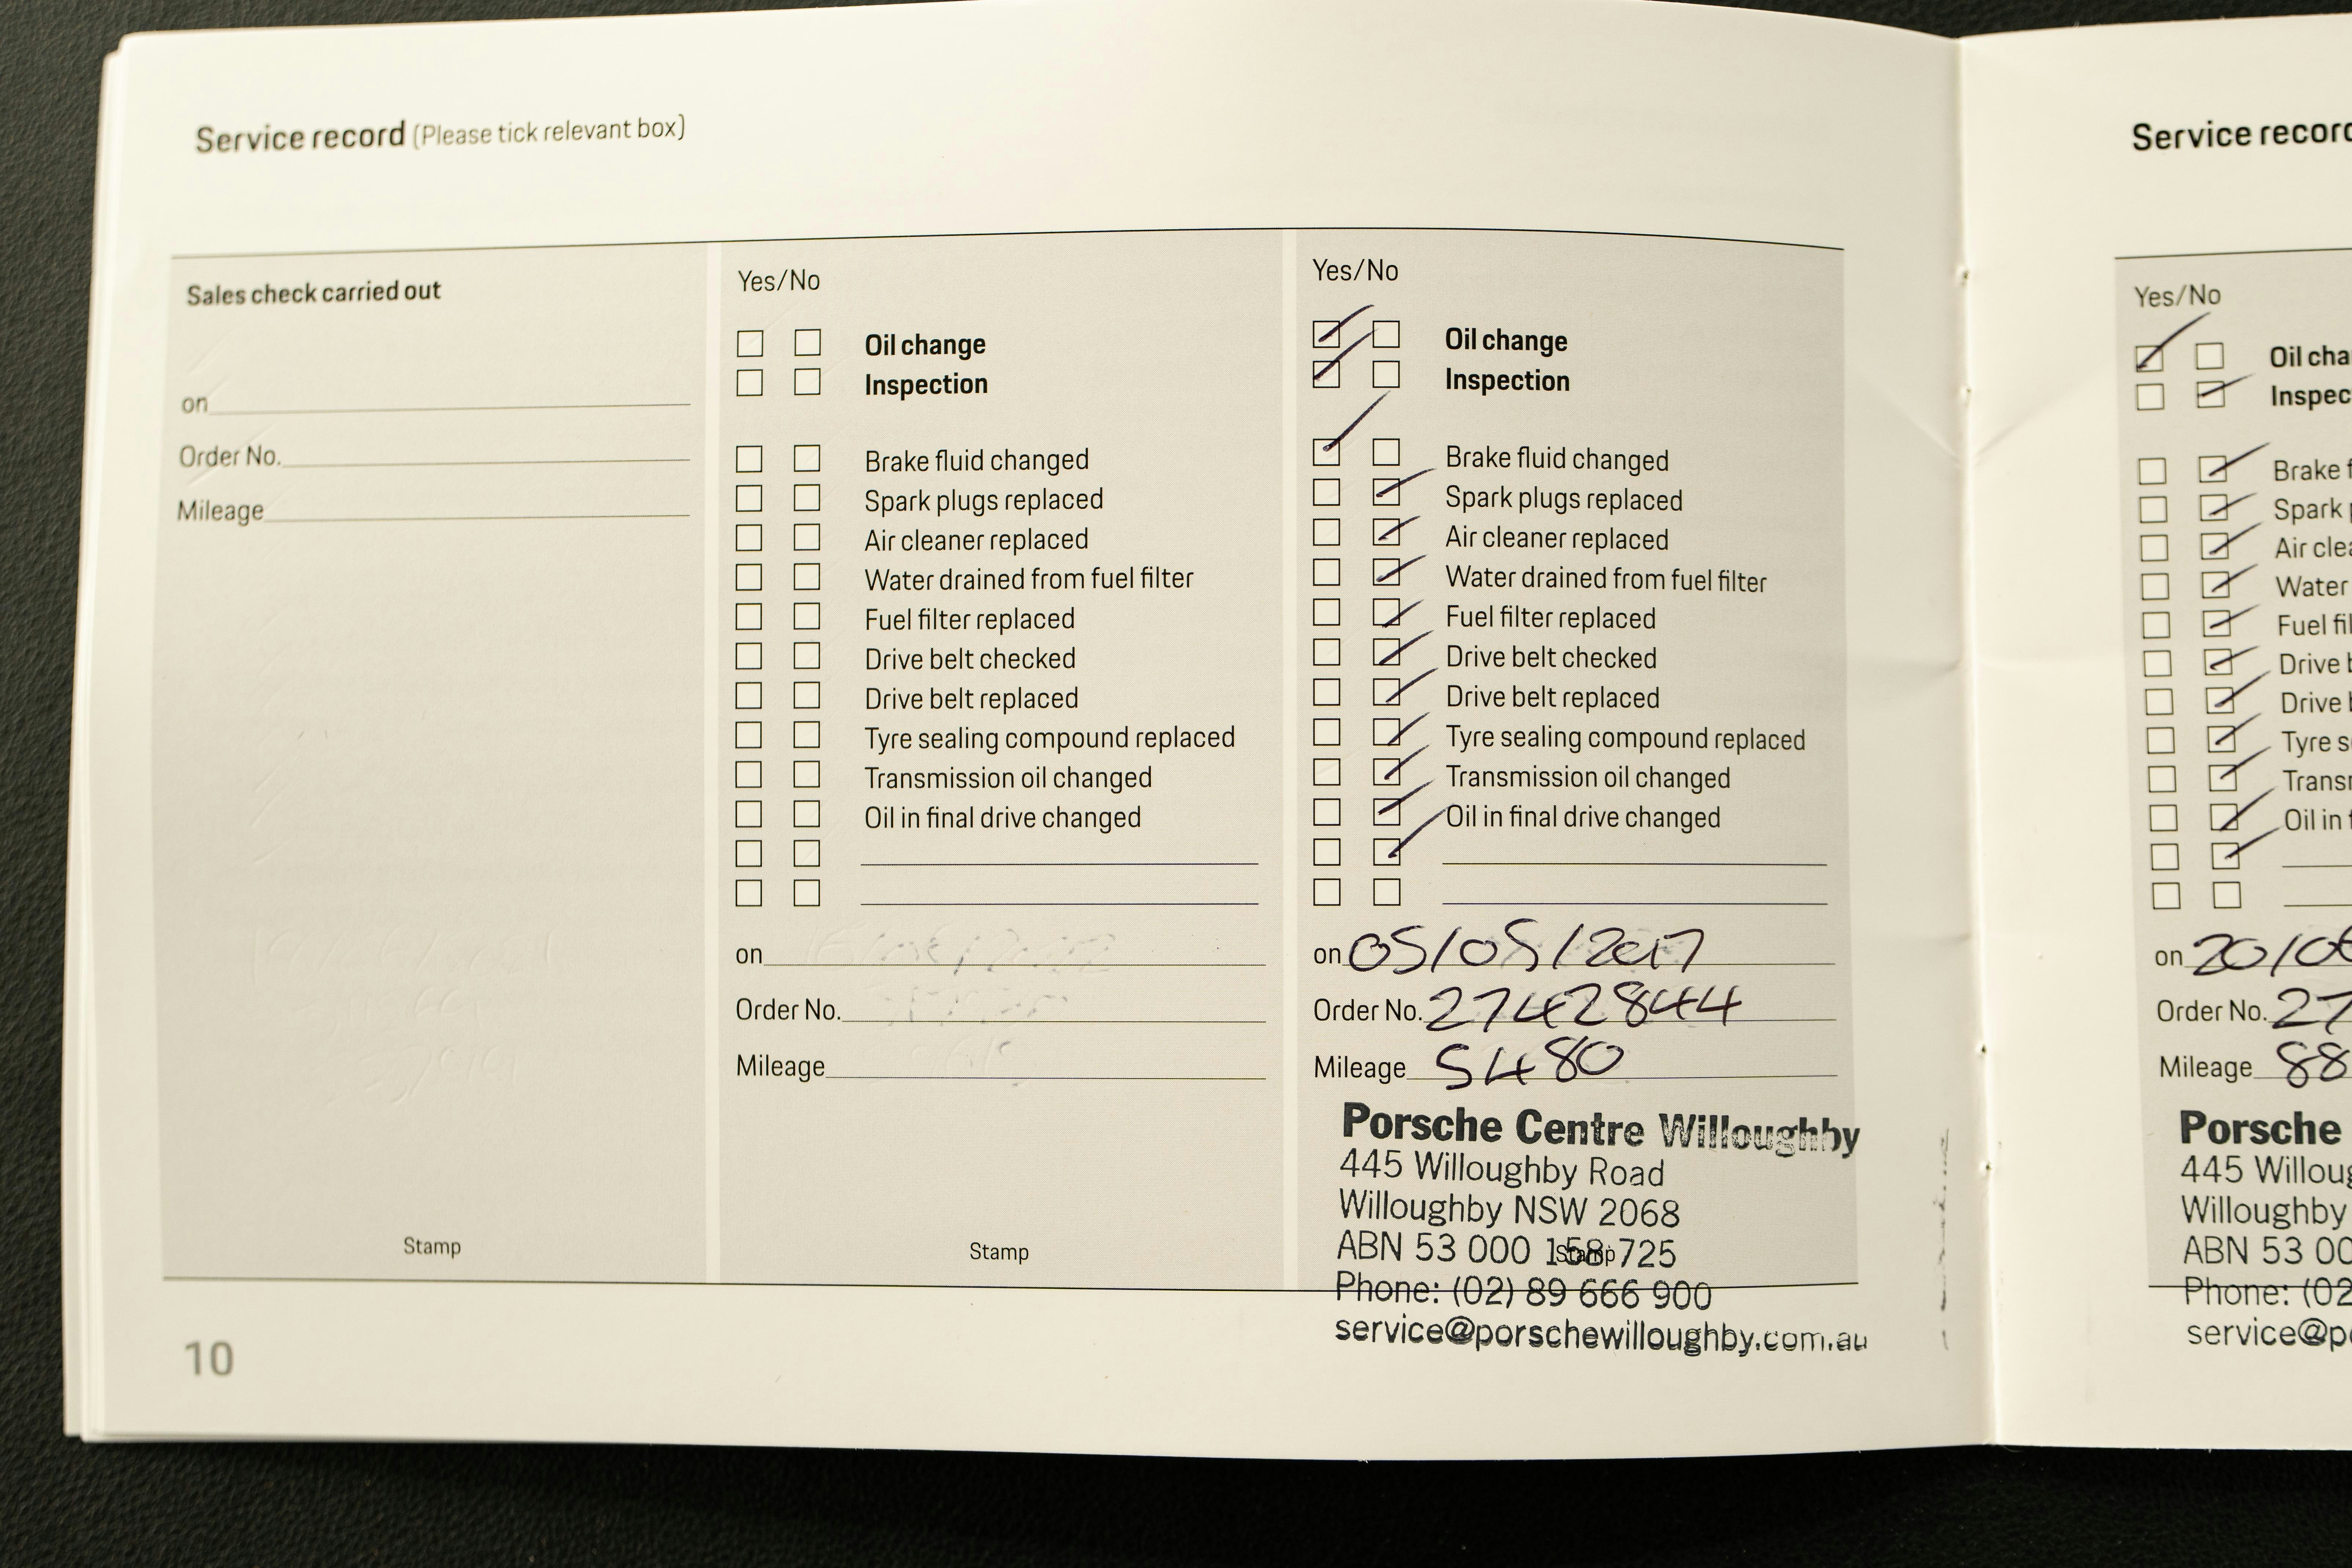 Service record (Please tick relevant box)
Sales check carried out
on
Order No.
Mileage
Stamp
Yes/No
Oil change
Inspection
Brake fluid changed
Spark plugs replaced
Air cleaner replaced
Water drained from fuel filter
Fuel filter replaced
Drive belt checked
Drive belt replaced
Tyre sealing compound replaced
Transmission oil changed
Oil in final drive changed
on
Order No.
Mileage
Stamp
Yes/No
Oil change
Inspection
Brake fluid changed
Spark plugs replaced
Air cleaner replaced
Water drained from fuel filter
Fuel filter replaced
Drive belt checked
Drive belt replaced
Tyre sealing compound replaced
Transmission oil changed
Oil in final drive changed
on 05/05/2017
Order No. 2742844
Mileage 5480
Porsche Centre Willoughby
445 Willoughby Road
Willoughby NSW 2068
ABN 53 000 158 725
Stamp
Phone: (02) 89 666 900
service@porschewilloughby.com.au
10
Service record
Yes/No
Oil cha
Inspec
Brake f
Spark p
Air clea
Water
Fuel fil
Drive b
Drive b
Tyre s
Transm
Oil in f
on 20/06
Order No. 27
Mileage 88
Porsche
445 Willoug
Willoughby
ABN 53 00
Phone: (02
service@po